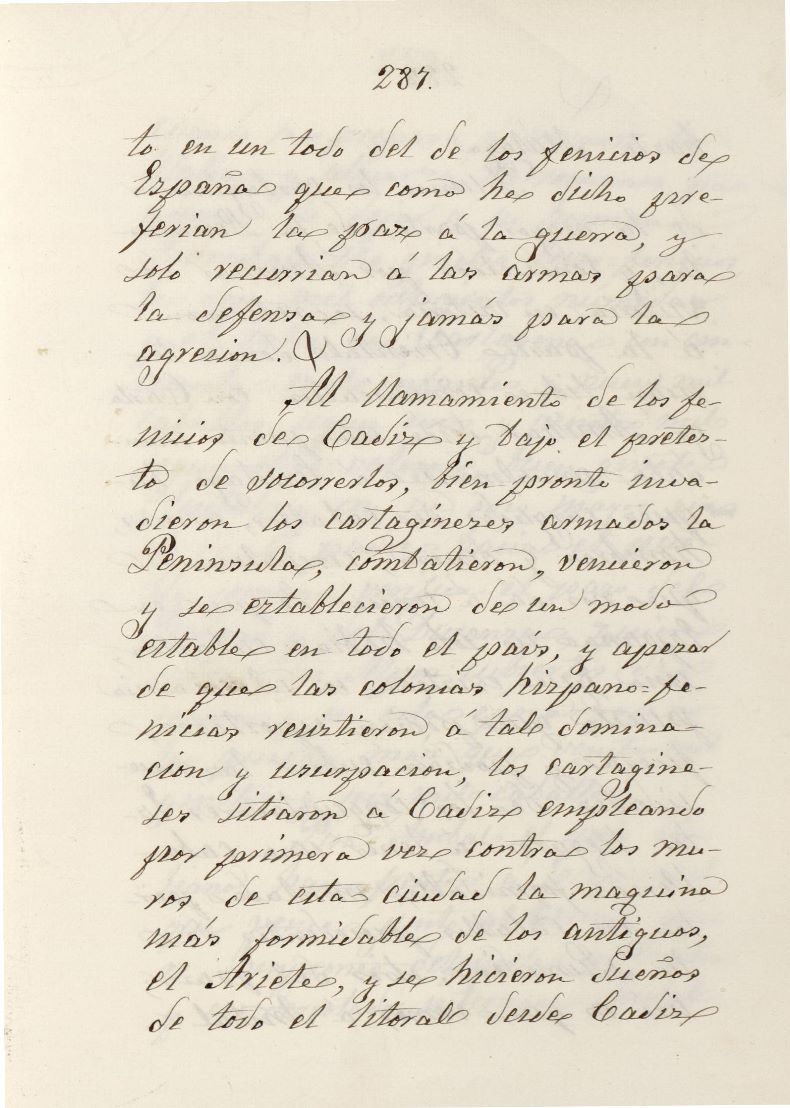 287.
to en un todo del de los fenicios de
España que como he dicho pre-
ferian la paz á la guerra, y
solo recurrian á las armas para
la defensa y jamás para la
agresion.
Al llamamiento de los fe-
nicios de Cadiz y bajo el pretes-
to de socorrerlos, bien pronto inva-
dieron los cartagineses armados la
Peninsula, combatieron, vencieron
y se establecieron de un modo
estable en todo el país, y apesar
de que las colonias hispano=fe-
nicias resistieron á tal domina-
cion y usurpacion, los cartagine-
ses sitiaron á Cadiz empleando
por primera vez contra los mu-
ros de esta ciudad la maquina
más formidable de los antiguos,
el Ariete, y se hicieron dueños
de todo el litoral desde Cadiz